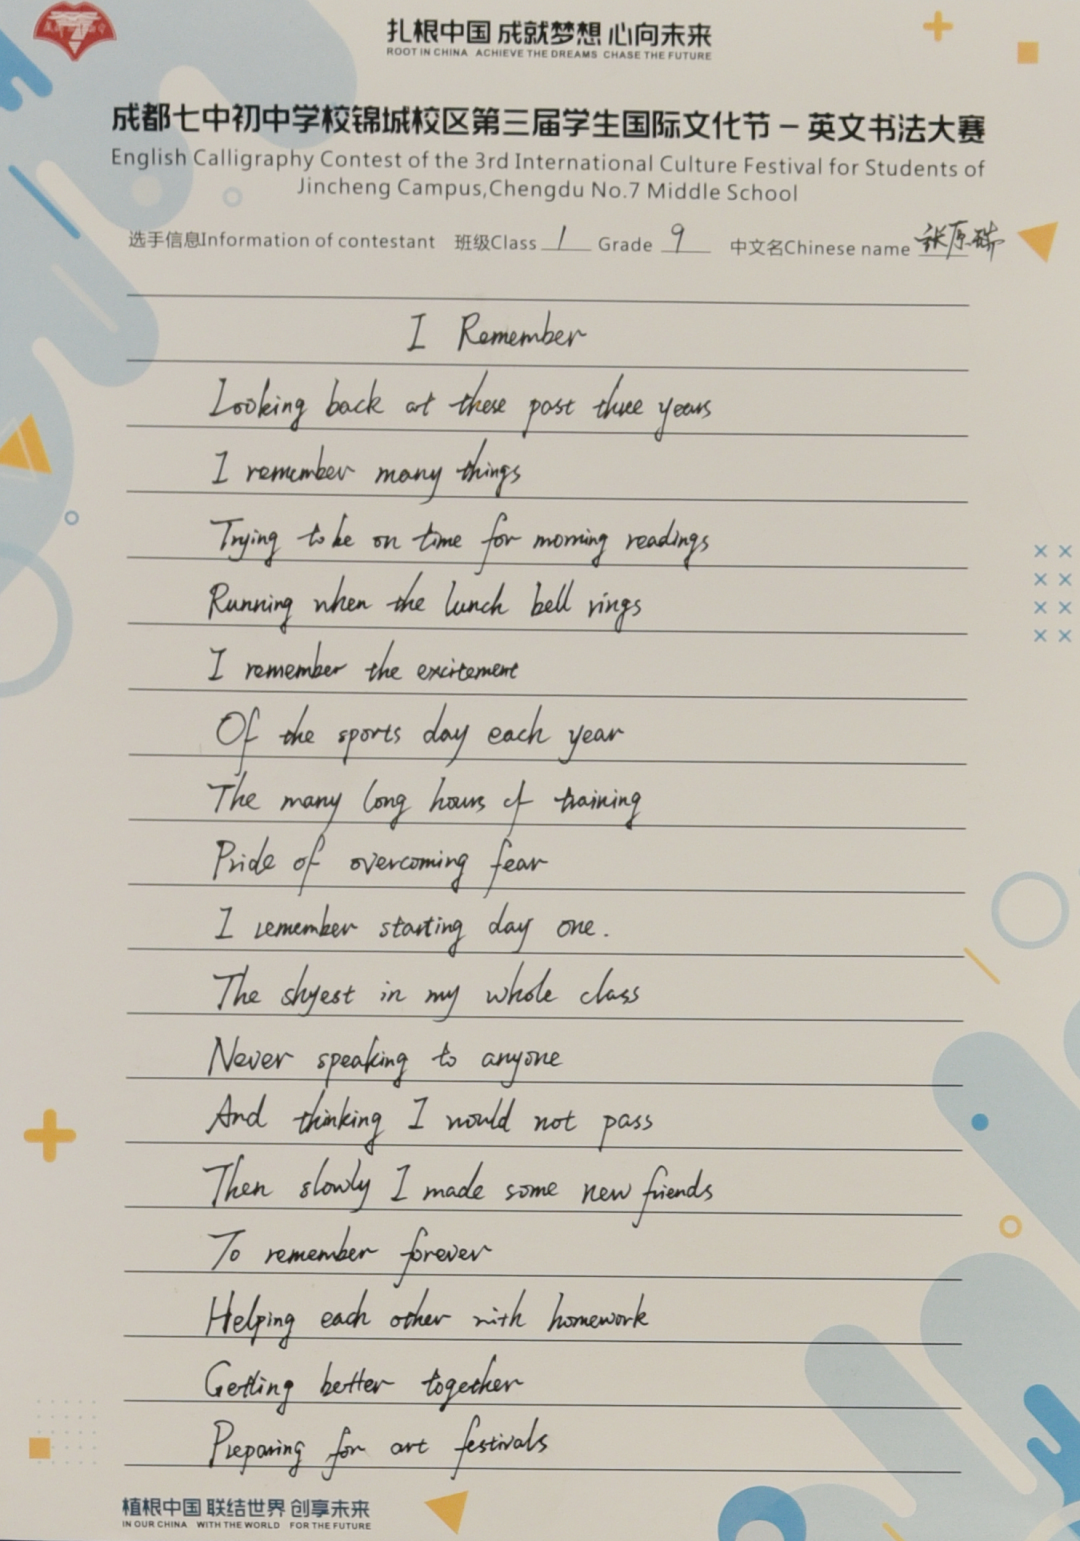 扎根中国 成就梦想 心向未来
ROOT IN CHINA ACHIEVE THE DREAMS CHASE THE FUTURE
成都七中初中学校锦城校区第三届学生国际文化节－英文书法大赛
English Calligraphy Contest of the 3rd International Culture Festival for Students of
Jincheng Campus,Chengdu No.7 Middle School
选手信息Information of contestant 班级Class 1 Grade 9 中文名Chinese name 张原瑞
I Remember
Looking back at these past three years
I remember many things
Trying to be on time for morning readings
Running when the lunch bell rings
I remember the excitement
Of the sports day each year
The many long hours of training
Pride of overcoming fear
I remember starting day one.
The shyest in my whole class
Never speaking to anyone
And thinking I would not pass
Then slowly I made some new friends
To remember forever
Helping each other with homework
Getting better together
Preparing for art festivals
植根中国 联结世界 创享未来
IN OUR CHINA WITH THE WORLD FOR THE FUTURE